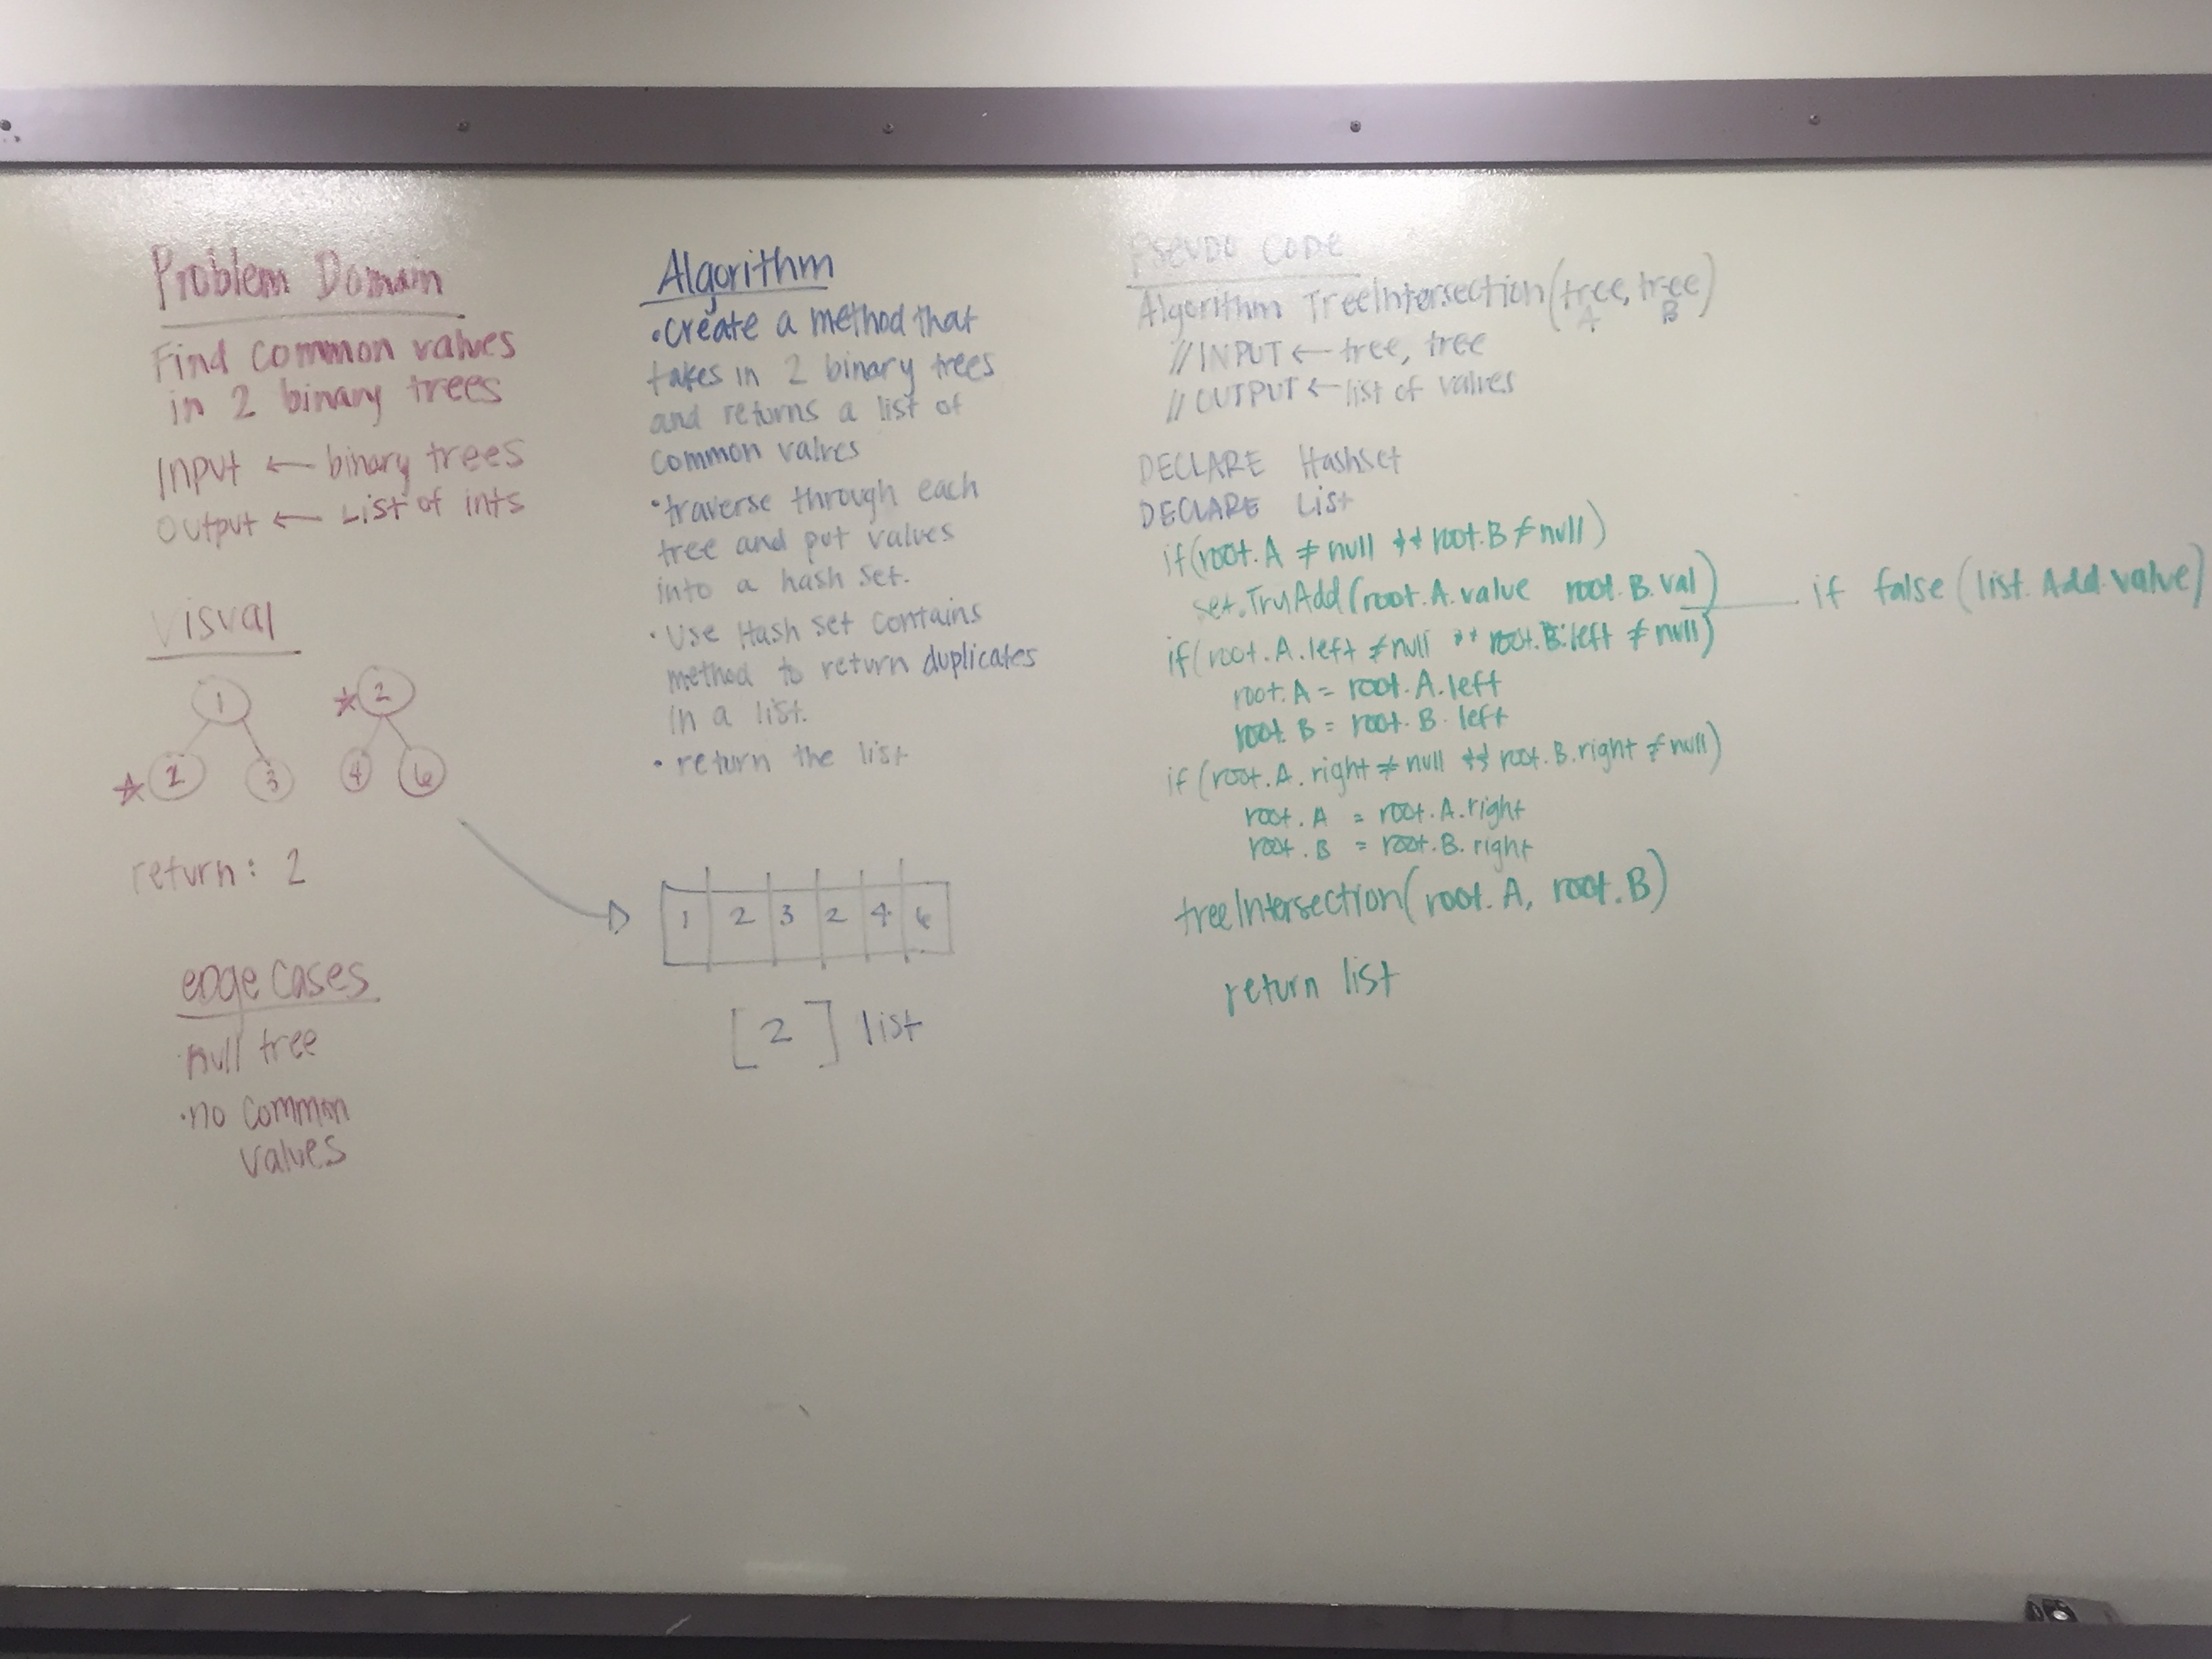 Problem Domain
Find common values
in 2 binary trees
Input ← binary trees
Output ← List of ints
Visual
1
★ 2
★ 2
3
4
6
return: 2
edge cases
·null tree
·no common
values
Algorithm
·Create a method that
takes in 2 binary trees
and returns a list of
common values
·traverse through each
tree and put values
into a hash set.
·Use Hash set contains
method to return duplicates
in a list.
·return the list
1 2 3 2 4 6
[2] list
Pseudo Code
Algorithm TreeIntersection(tree, tree)
A B
// INPUT ← tree, tree
// OUTPUT ← list of values
DECLARE Hashset
DECLARE List
if(root.A ≠ null && root.B ≠ null)
set.TryAdd(root.A.value root.B.val) if false (list.Add.value)
if(root.A.left ≠ null && root.B.left ≠ null)
root.A = root.A.left
root.B = root.B.left
if(root.A.right ≠ null && root.B.right ≠ null)
root.A = root.A.right
root.B = root.B.right
treeIntersection(root.A, root.B)
return list